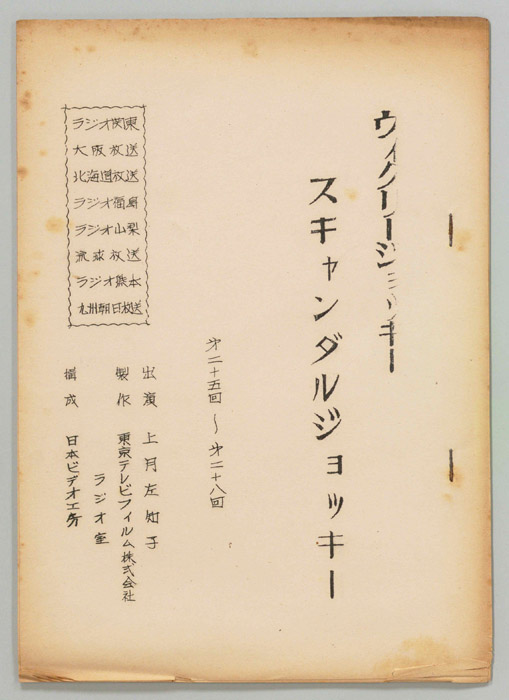 ウィクリージョッキー
スキャンダルジョッキー
ラジオ関東
大阪放送
北海道放送
ラジオ福島
ラジオ山梨
琉球放送
ラジオ熊本
九州朝日放送
才二十五回〜才二十八回
出演 上月左知子
製作 東京テレビフィルム株式会社
ラジオ室
構成 日本ビデオ工房